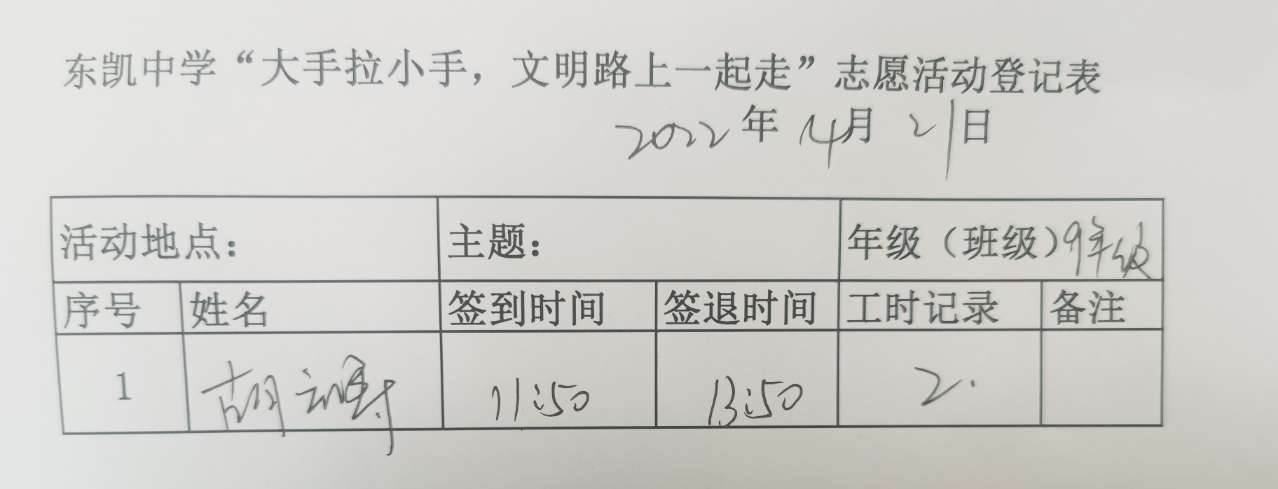 东凯中学“大手拉小手，文明路上一起走”志愿活动登记表
2022年 4月 21日
活动地点： 主题： 年级（班级）9年级
序号 姓名 签到时间 签退时间 工时记录 备注
1 胡 11:50 13:50 2.